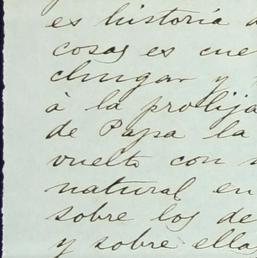 es historia
cosas es cue
chugar y
à la prolija
de Papa la
vuelto con
natural en
sobre los de
y sobre ellas